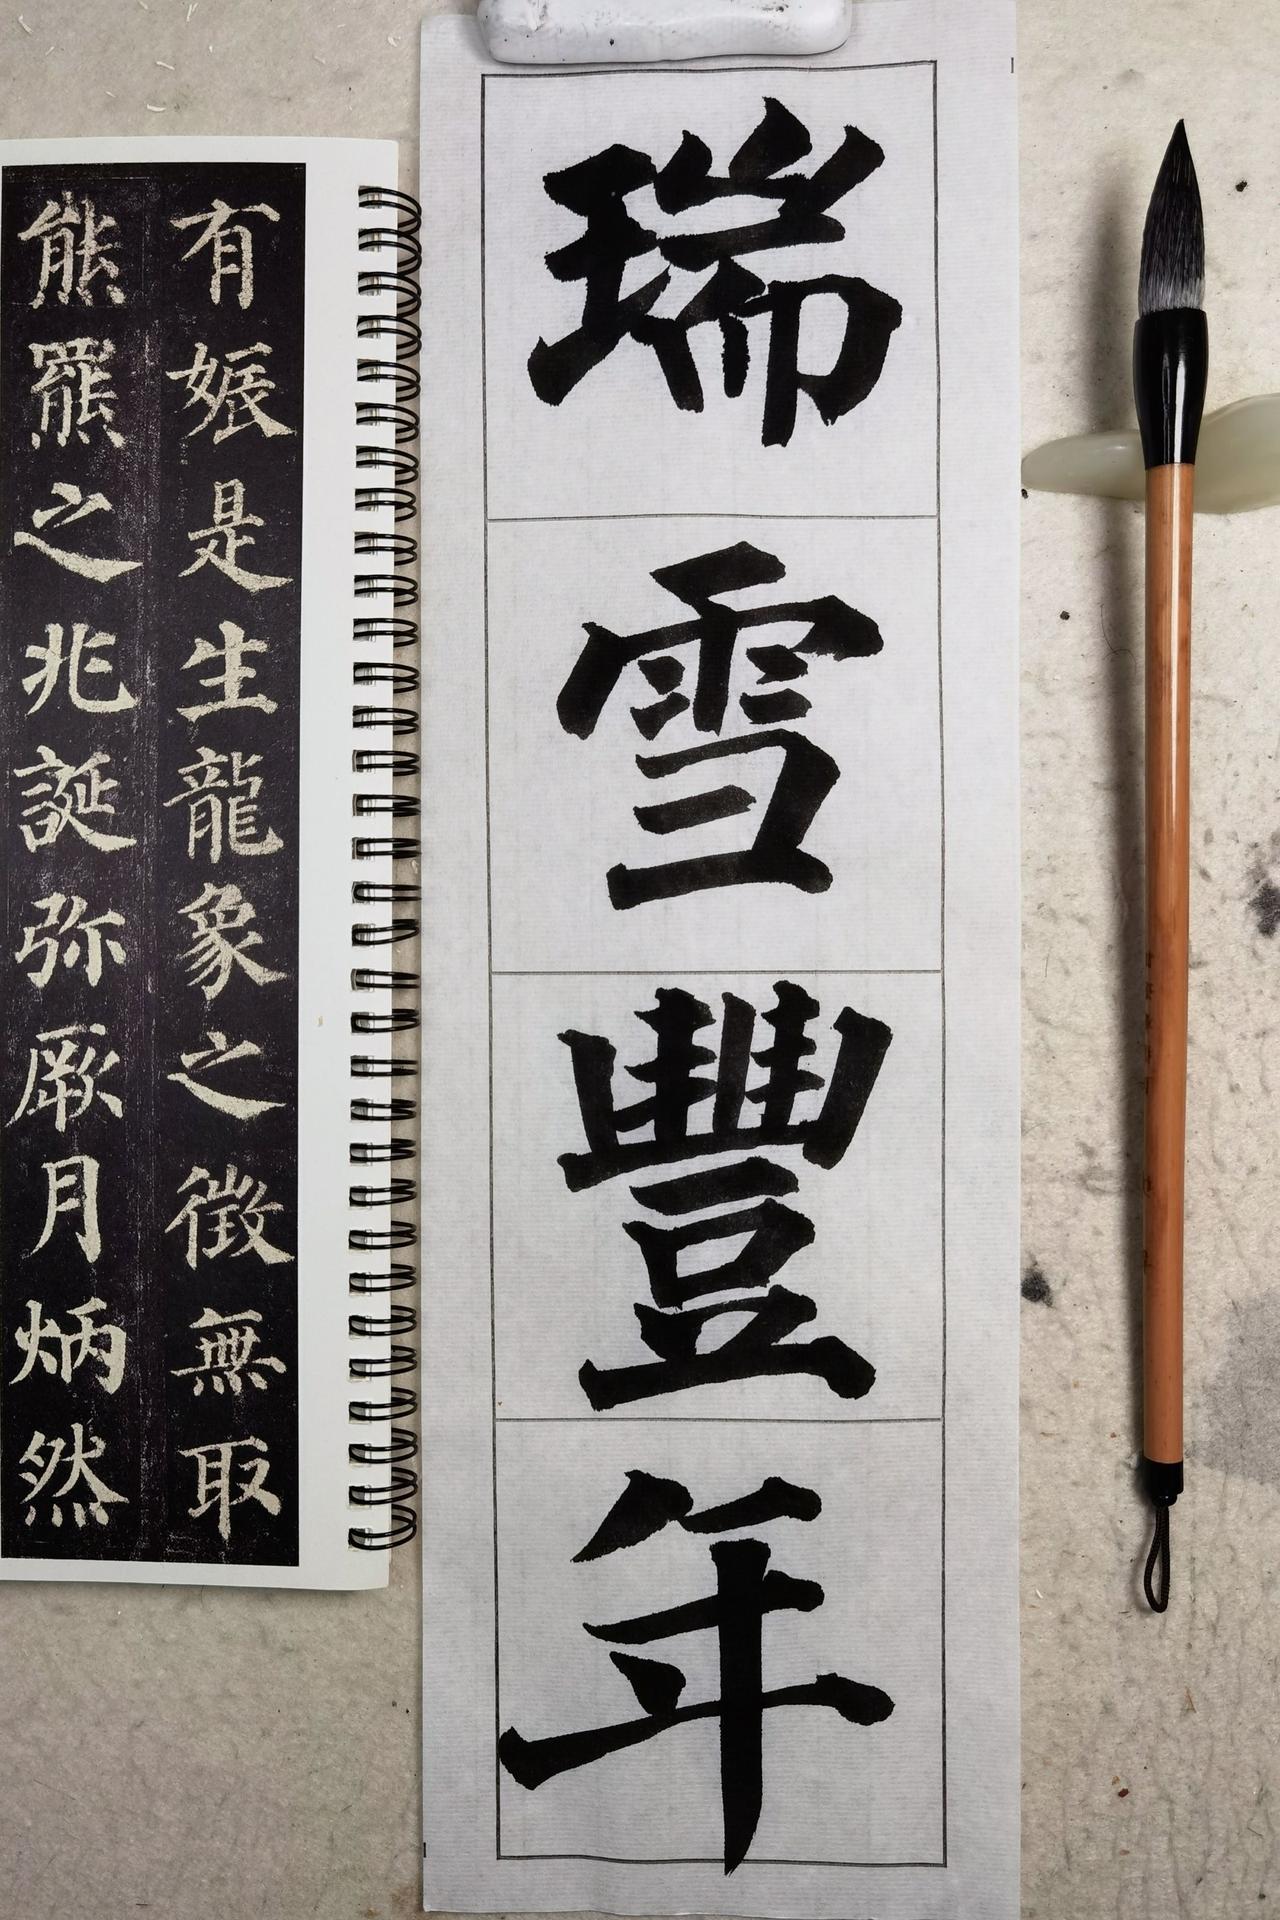 瑞雪豐年
有娠是生龍象之徵無取
熊羆之兆誕弥厥月炳然